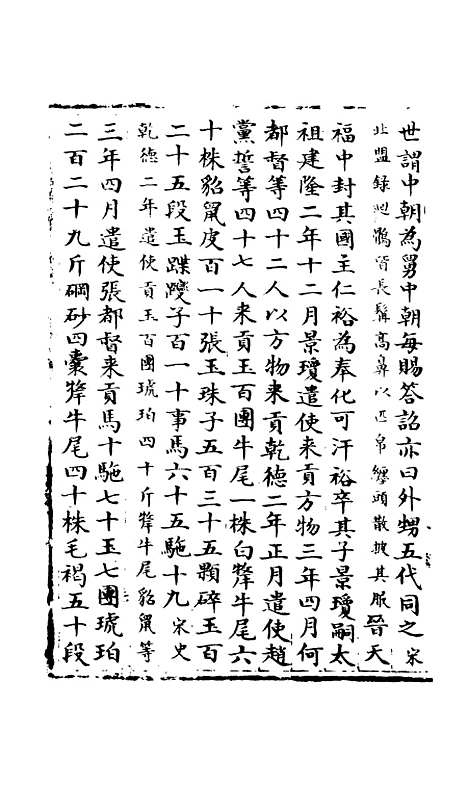 世謂中朝為舅中朝每賜答詔亦曰外甥五代同之宋
北盟錄回鶻皆長髯高鼻以匹帛纏頭散披其服晉天
福中封其國主仁裕為奉化可汗裕卒其子景瓊嗣太
祖建隆二年十二月景瓊遣使来貢方物三年四月何
都督等四十二人以方物来貢乾德二年正月遣使趙
黨誓等四十七人来貢玉百團牛尾一株白犛牛尾六
十株貂鼠皮百一十張玉珠子五百三十五顆碎玉百
二十五段玉䠟躞子百一十事馬六十五駞十九宋史
乾德二年遣使貢玉百團琥珀四十斤犛牛尾貂鼠等
三年四月遣使張都督来貢馬十駞七十玉七團琥珀
二百二十九斤碙砂四囊犛牛尾四十株毛褐五十段